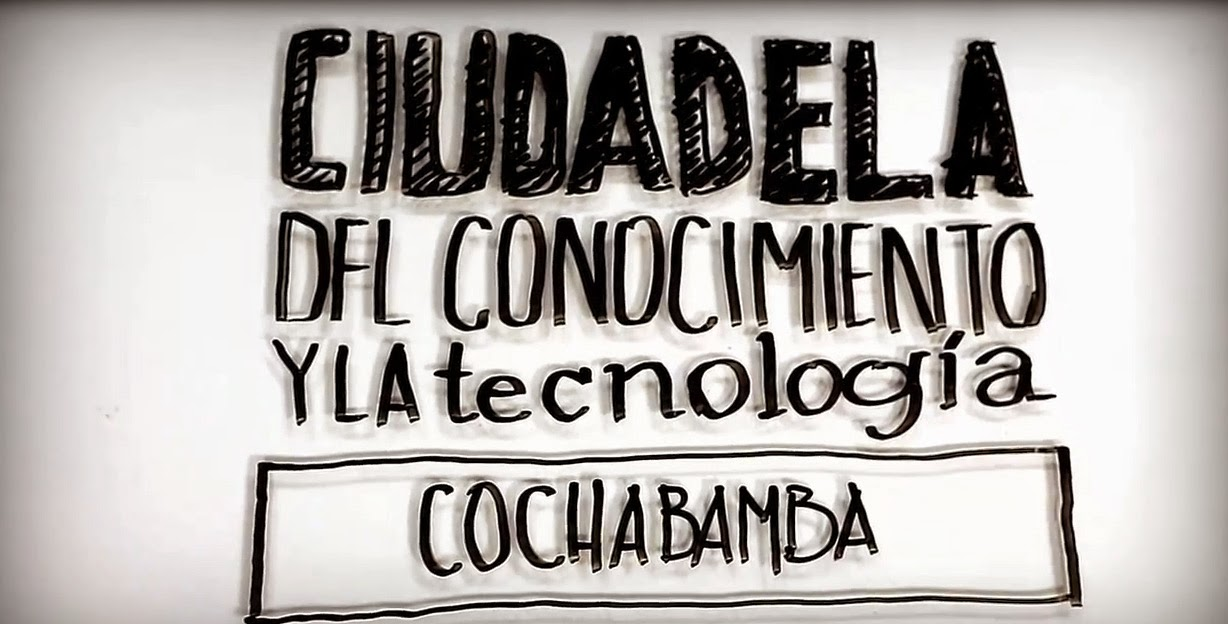 CIUDADELA
DEL CONOCIMIENTO
Y LA tecnología
COCHABAMBA